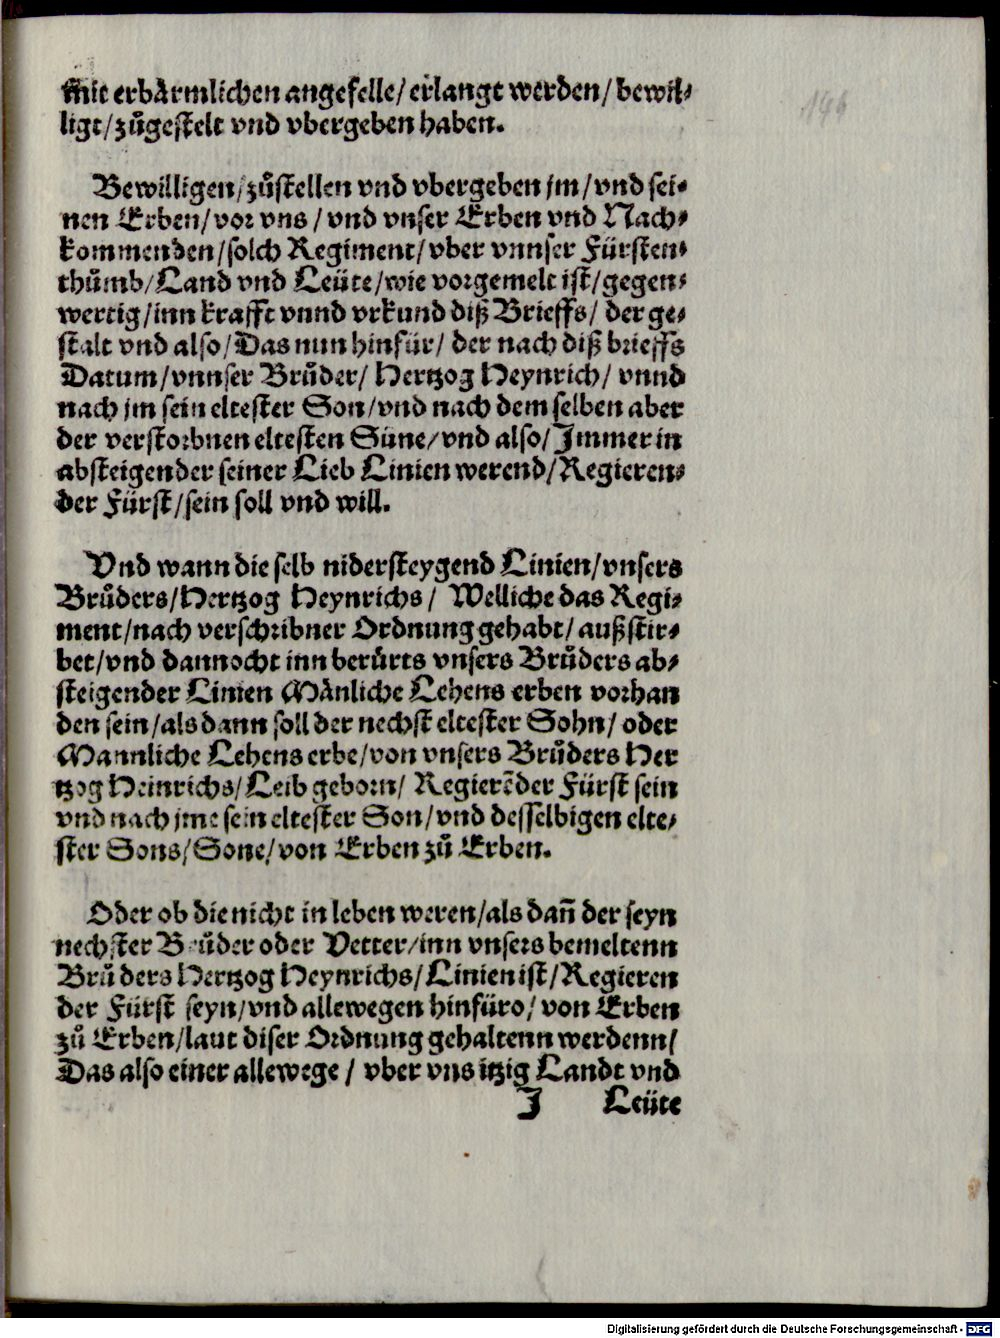 mit erbårmlichen angefelle/ erlangt werden/ bewil⸗
ligt/zůgestelt vnd vbergeben haben.
Bewilligen/zůstellen vnd vbergeben jm/vnd sei⸗
nen Erben/vor vns/ vnd vnser Erben vnd Nach⸗
kommenden/solch Regiment/ vber vnnser Fürsten⸗
thůmb/Land vnd Leüte/wie vorgemelt ist/gegen⸗
wertig/inn krafft vnnd vrkund diß Brieffs/ der ge⸗
stalt vnd also/Das nun hinfür/ der nach diß brieffs
Datum/vnnser Brůder/ Hertzog Heynrich/ vnnd
nach jm sein eltester Son/vnd nach dem selben aber
der verstorbnen eltesten Süne/vnd also/Immer in
absteigender seiner Lieb Linien werend/Regieren⸗
der Fürst/sein soll vnd will.
Vnd wann die selb nidersteygend Linien/vnsers
Brůders/Hertzog Heynrichs/ Welliche das Regi⸗
ment/nach verschribner Ordnung gehabt/ außstir⸗
bet/vnd dannocht inn berůrts vnsers Brůders ab⸗
steigender Linien Månliche Lehens erben vorhan
den sein/als dann soll der nechst eltester Sohn/ oder
Mannliche Lehens erbe/von vnsers Brůders Her
tzog Heinrichs/ Leib geborn/ Regierēder Fürst sein
vnd nach jme sein eltester Son/vnd desselbigen elte⸗
ster Sons/Sone/von Erben zů Erben.
Oder ob die nicht in leben weren/als dañ der seyn
nechster Brůder oder Vetter/inn vnsers bemeltenn
Brůders Hertzog Heynrichs/Linien ist/Regieren
der Fürst seyn/vnd allewegen hinfüro/ von Erben
zů Erben/laut diser Ordnung gehaltenn werdenn/
Das also einer allewege/ vber vns itzig Landt vnd
J Leüte
146
Digitalisierung gefördert durch die Deutsche Forschungsgemeinschaft - DFG